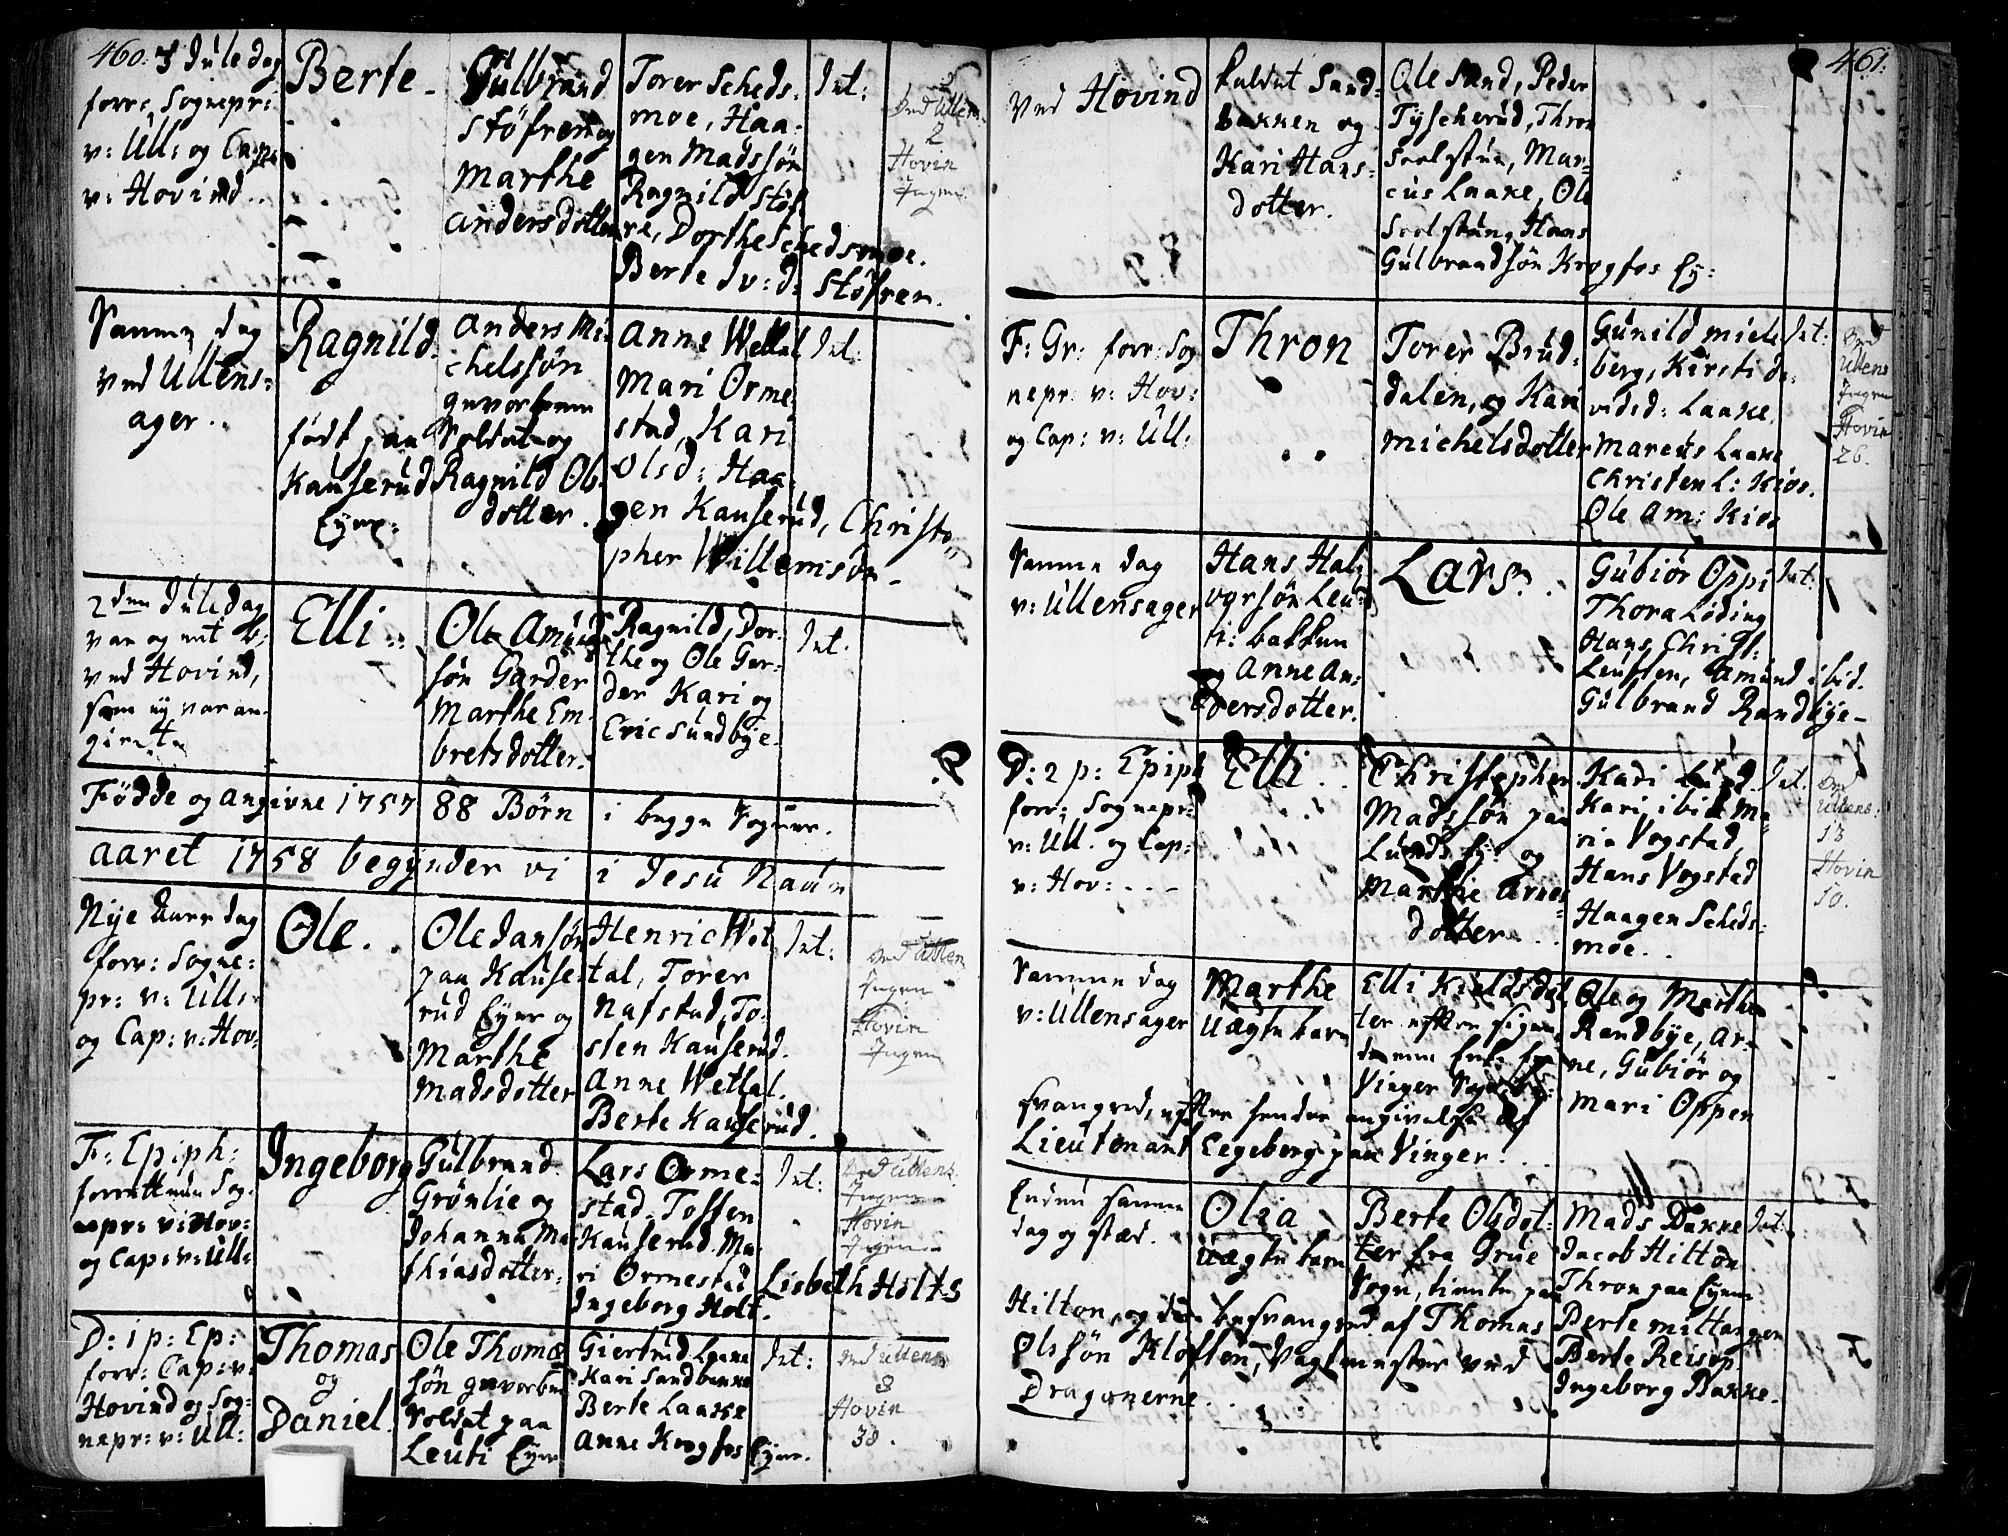 460.
3 Jule dag
forr: Sognepr:
v: Ull: og Cap:
v: Hovind..
Berte.
Gulbrand
Støfren og
Marthe
Andersdotter
Torer Scheds:
moe, Haa:
gen Madssøn
Ragnild Støf
re, Dorthe Schedsmoe.
Berte Iv: d: Støfren.
Int:
Ved Ullens.
2
Hovin
Ingen
Samme dag
ved Ullens:
ager..
Ragnild
født paa
Kauserud
Eyer:
Anders Mi:
chelssøn
gevorben
Soldat og
Ragnild Ols
dotter.
Anne Wetlal
Mari Orme
stad, Kari
Olsd: Haa:
gen Kauserud, Christo
pher Willemsøn
Int:
2den Juledag
var og mit b:
ved Hovind,
som ey var an
givet
Elli
Ole Amund
søn Garder
Marthe Em:
bretsdotter.
Ragnild, Dor:
the og Ole Gar:
der Kari og
Eric Sundbye.
Int.
Fødde og angivne 1757 88 Børn i begge Sogner.
aaret 1758 begynder vi i Jesu Naun
Nye Aars dag
forr: Sogne:
pr: v: Ull:
og Cap: v: Hov:
Ole.
Ole Jansøn
paa Kause
rud Eyer og
Marthe
Madsdotter
Henric Wet
tal, Torer
Nafstad, To:
sten Kauserud.
Anne Wetlal.
Berte Kauserud.
Int:
Ved Ullen
Ingen
Hovin
Ingen
F: Epiph:
forrettede Sog:
nepr: v: Hov:
og Cap: v: Ull:
Ingeborg
Gulbrand
Grønlie og
Johanna Ma
thiasdotter.
Lars Orme:
stad. Tosten
Kauserud. Ma:
ri Ormestad
Ingeborg Holt.
Lisbeth Holts
Int:
Ved Ullens.
Ingen
Hovin
Ingen
D: 1 p: Ep:
forr: Cap: v:
Hovind og Sog:
nepr: v: Ull:
Thomas
og
Daniel.
Ole Thomæ
søn gevorben
Soldat paa
Leuti Eyer
Giertrud Laake
Kari Sandbakke
Berte Laake
Anne Krogfos Eyer.
Int:
Ved Ullens
8
Hovin
38.
461.
Ved Hovind
kaldet Sand:
bakken og
Kari Hans:
dotter.
Ole Sand, Peder
Tyscherud, Thron
Soolstun, Mar:
cus Laake, Ole
Soolstun, Hans
Gulbrandsøn Krogfos Ey:
F: Gr: forr: Sog
nepr: v: Hov:
og Cap: v: Ull:
Thron
Torer Brud:
dalen, og Kari
Michelsdotter
Gunild Miele
berg, Kirsti Da:
vidsd: Laake,
Marcus Laake
Christen L: Kios.
Ole Am: Kios
Int:
Ved
Ullens
Ingen
Hovin
26.
Samme dag
v: Ullensager
Hans Hal:
vorsøn Leu:
ti: bakken
og Anne An:
dersdotter.
Lars.
Gubiør Oppi
Thora Løding
Hans Christ:
Leusten, Amund ibid.
Gulbrand Randbye
Int.
D: 2 p: Epiph
forr: Sognepr:
v: Ull. og Cap:
v: Hov:
Elli
Christopher
Madssøn paa
Lunds Ey: og
Marthe Arnes
dotter
Kari Lund.
Kari ibid Ma:
ria Vogstad,
Hans Vogstad
Haagen Scheds:
moe..
Int.
Ved
Ullens.
13
Hovin
10.
Samme dag
v: Ullensager
Marthe
Uægte barn
Elli Kieldsdot
ter
Vinger
svangred, efter hendes angivelse af
Lieutenant Eegeberg paa Vinger.
Ole og Marthe
Randbye, Ar:
ne, Gubiør og
Mari Oppen
Endnu samme
dag og stæd.
Olia
Uægte barn
Berte Olsdot:
ter fra Grue
Sogn, tiente paa
Hilton, og der besvangred af Thomas
Olssøn Kløften, Vagtmester ved
Dragonerne..
Mads Bakke
Jacob Hilton
Thron paa Eyene
Berte Mittangen
Berte Reisop
Ingeborg Bakke.
Int.